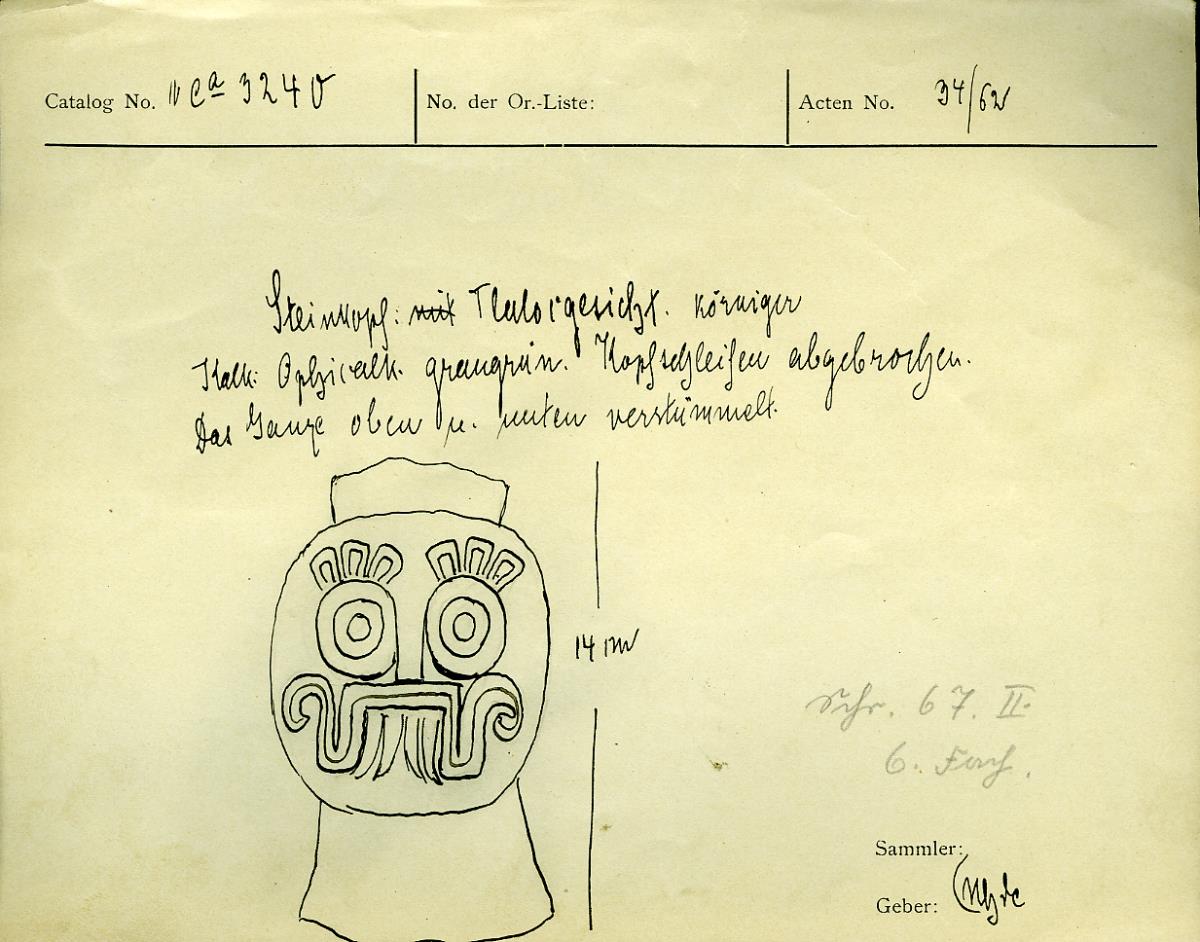 Catalog No. IV Ca 3240
No. der Or.-Liste:
Acten No. 34/62
Steinkopf: mit Tlalocgesicht. körniger
Kalk: Ophicalk. graugrün. Kopfschleifen abgebrochen.
Das Ganze oben u. unten verstümmelt.
14 cm
Schr. 67. II.
6. Fach.
Sammler:
Geber: Uhde